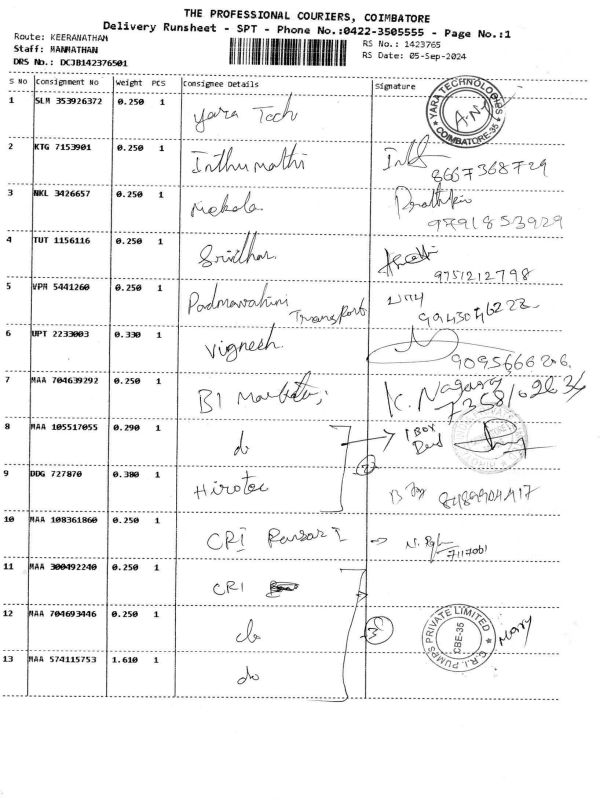 THE PROFESSIONAL COURIERS, COIMBATORE
Delivery Runsheet - SPT - Phone No.:0422-3505555 - Page No.:1
Route: KEERANATHAM
Staff: MANMATHAN
DRS No.: DCJB142376501
RS No.: 1423765
RS Date: 05-Sep-2024
S NO Consignment No Weight PCS Consignee Details Signature
1 SLM 353926372 0.250 1 Yara Tech
YARA TECHNOLOGIES COIMBATORE-35
2 KTG 7153901 0.250 1 Inthumathi
8667368729
3 NKL 3426657 0.250 1 Mekala
9791853929
4 TUT 1156116 0.250 1 Sridhar
9751212798
5 VPM 5441260 0.250 1 Padmavahini Transport
6 UPT 2233003 0.330 1 Vignesh
7 MAA 704639292 0.250 1 BI
K. Nagaraj
8 MAA 105517055 0.290 1 do
1 BOX
9 DDG 727870 0.380 1 Hirotec
8489904417
10 MAA 108361860 0.250 1 CRI
11 MAA 300492240 0.250 1 CRI
12 MAA 704693446 0.250 1 do
3
C.R.I. PUMPS PRIVATE LIMITED CBE-35
13 MAA 574115753 1.610 1 do